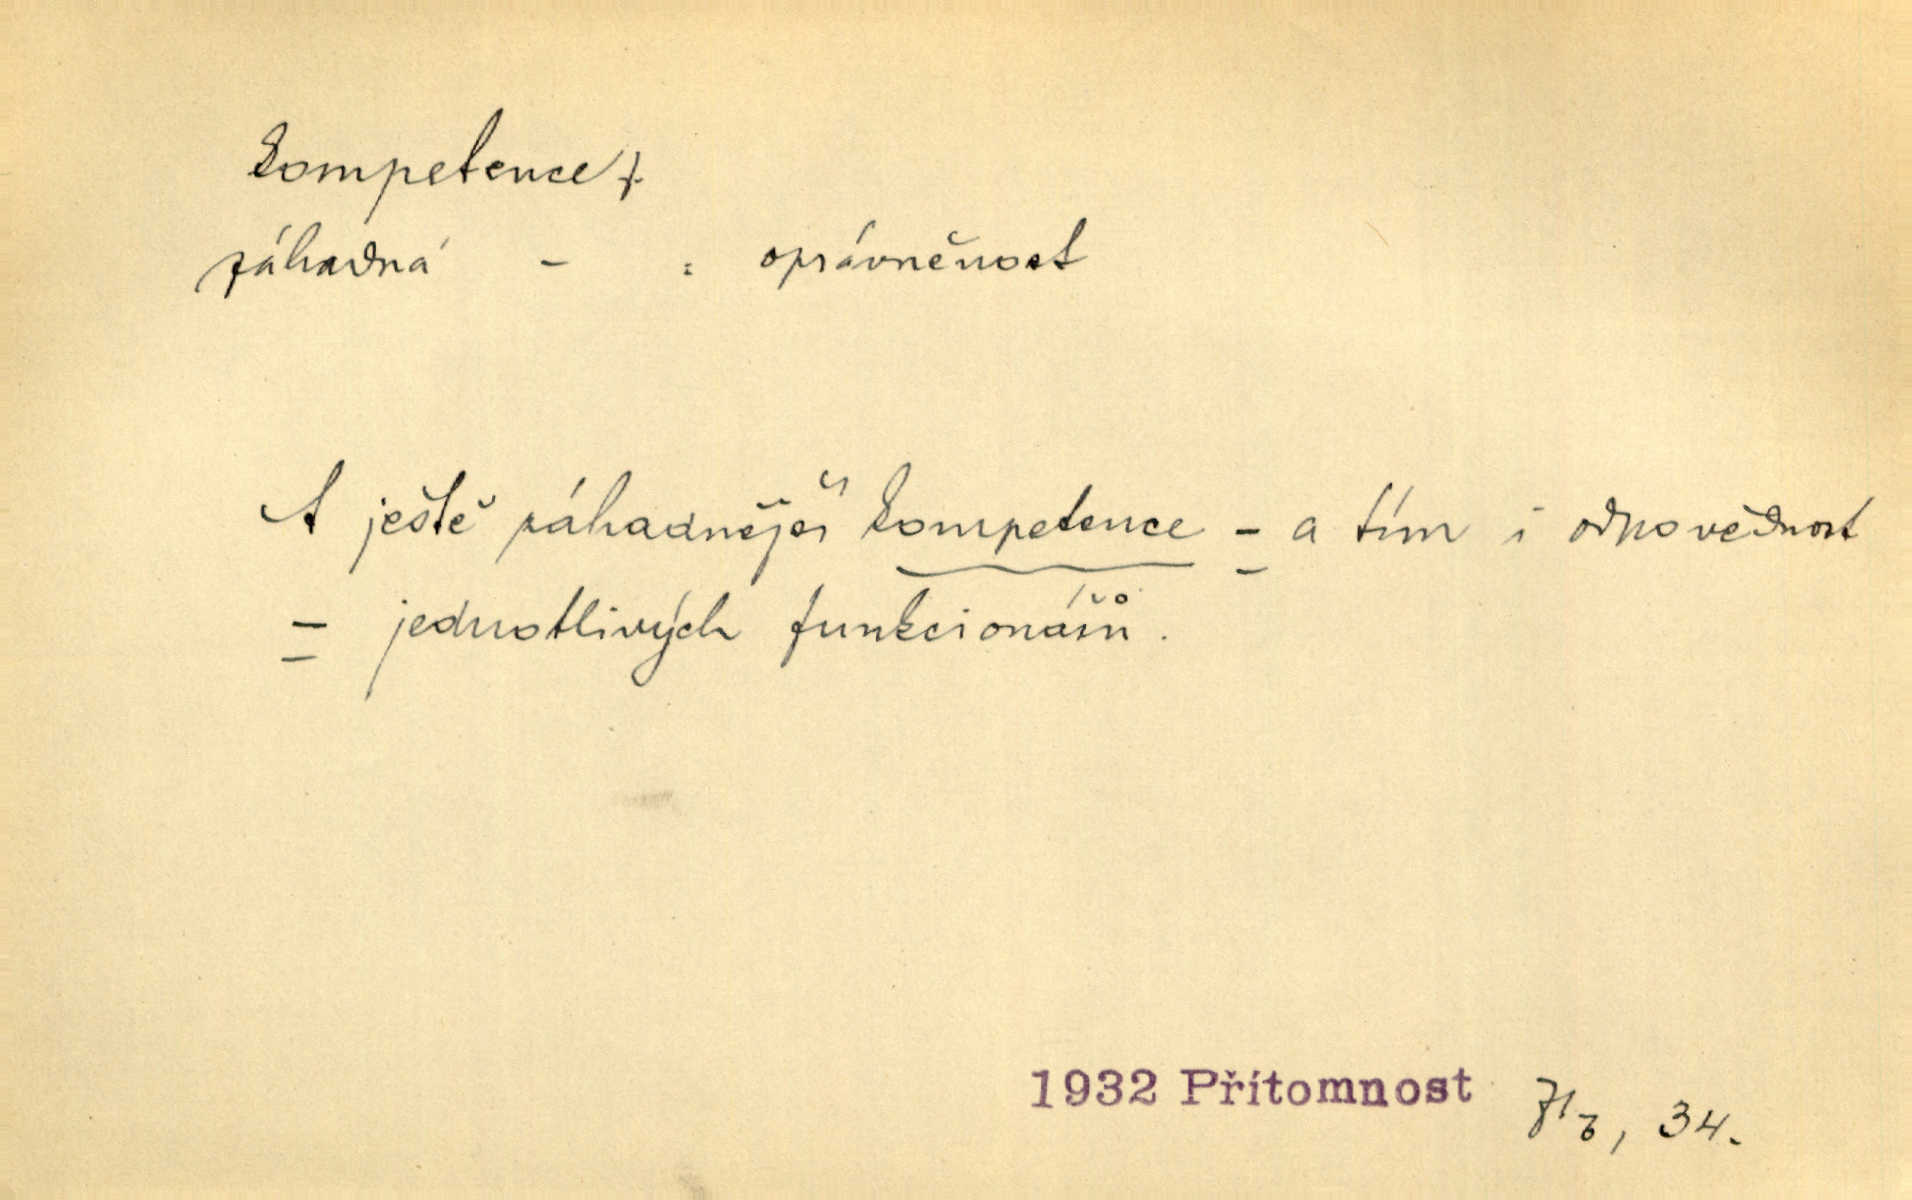 kompetence f.
záhadná - : oprávněnost
A ještě záhadnější kompetence - a tím i odpovědnost
- jednotlivých funkcionářů.
1932 Přítomnost , 34.